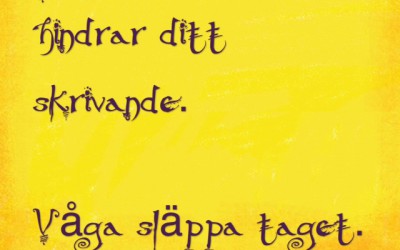 hindrar ditt
skrivande.
Våga släppa taget.